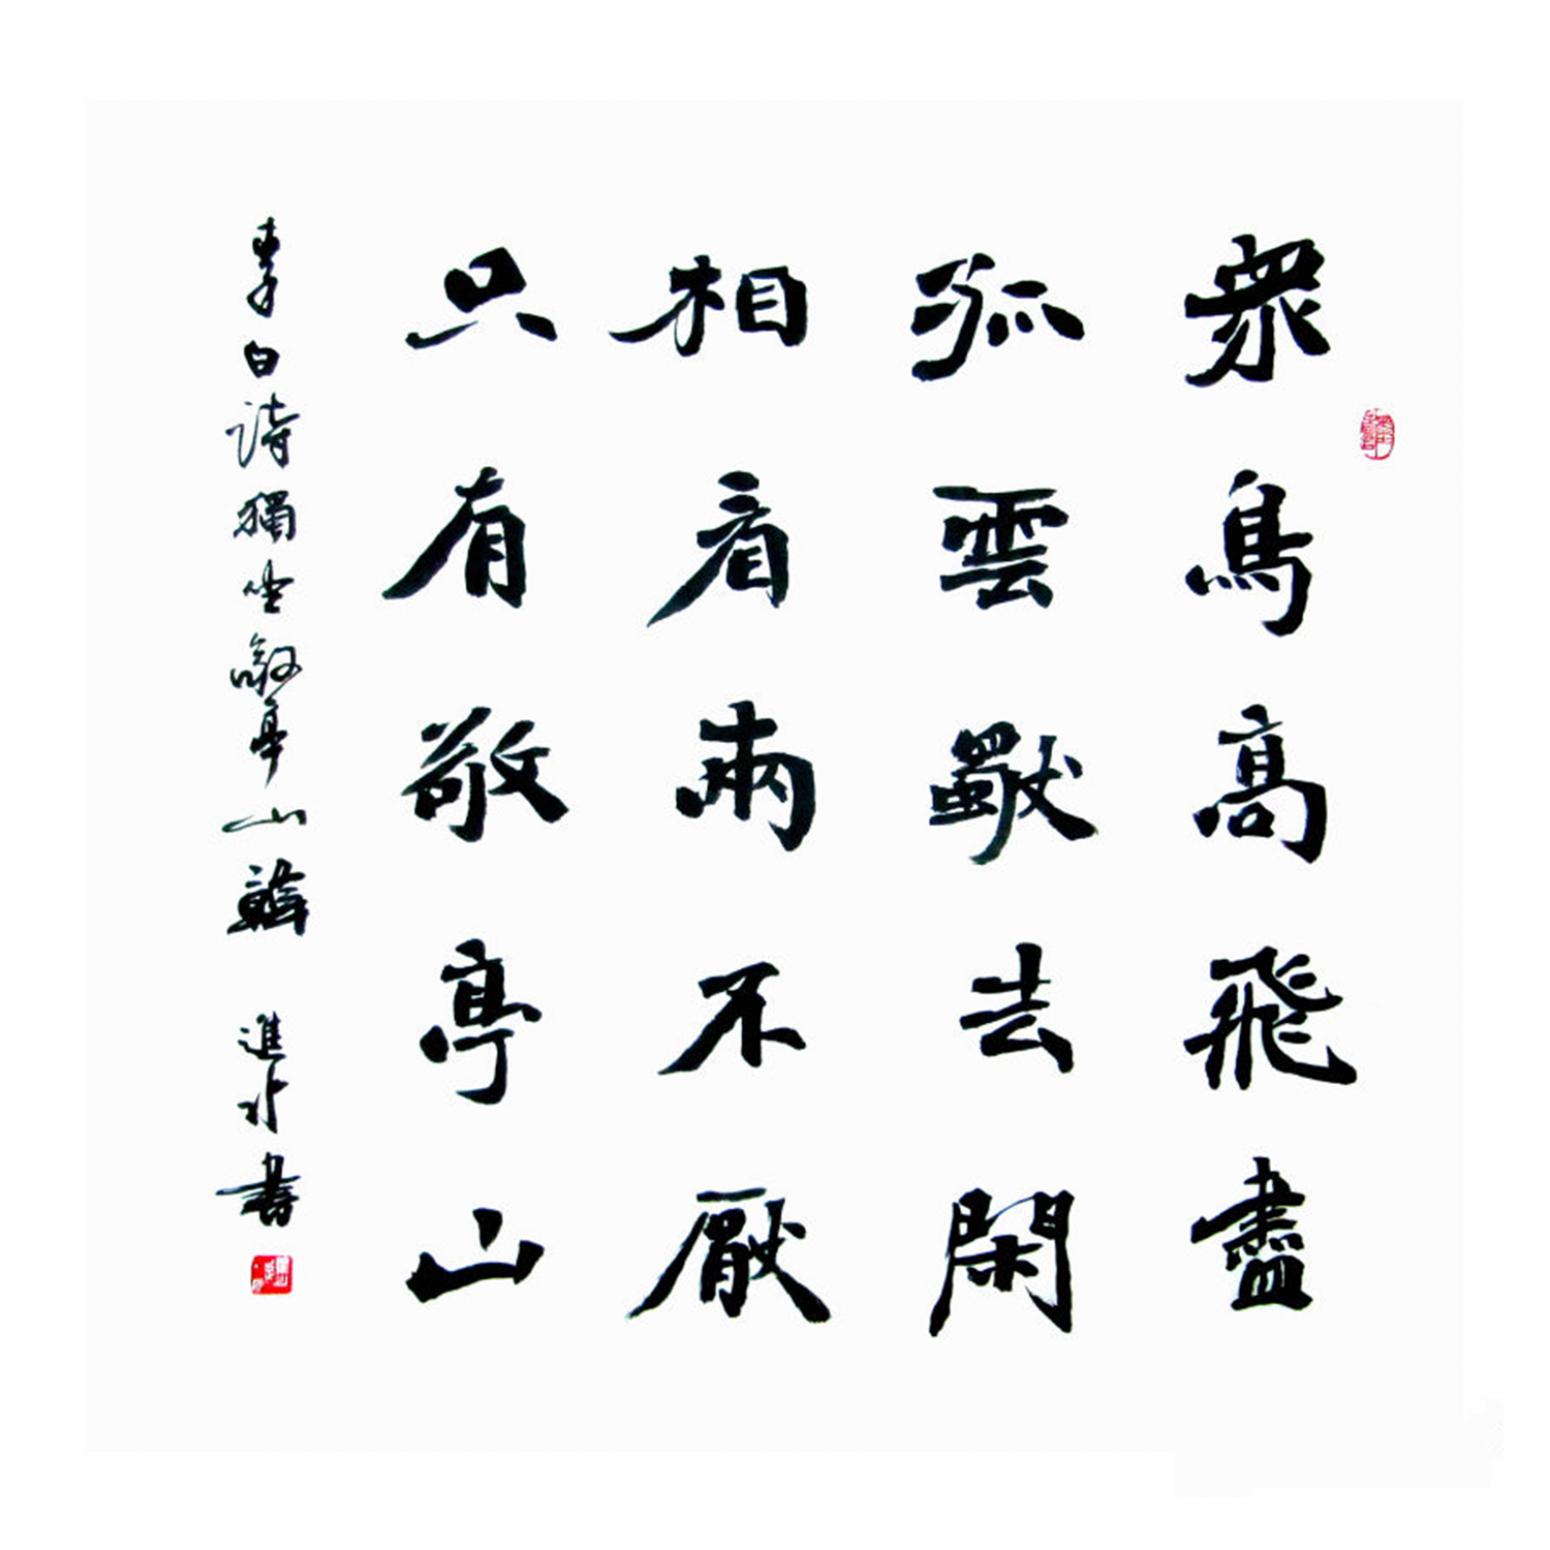 眾鳥高飛盡
孤雲獨去閑
相看兩不厭
只有敬亭山
李白詩獨坐敬亭山韓 進水書